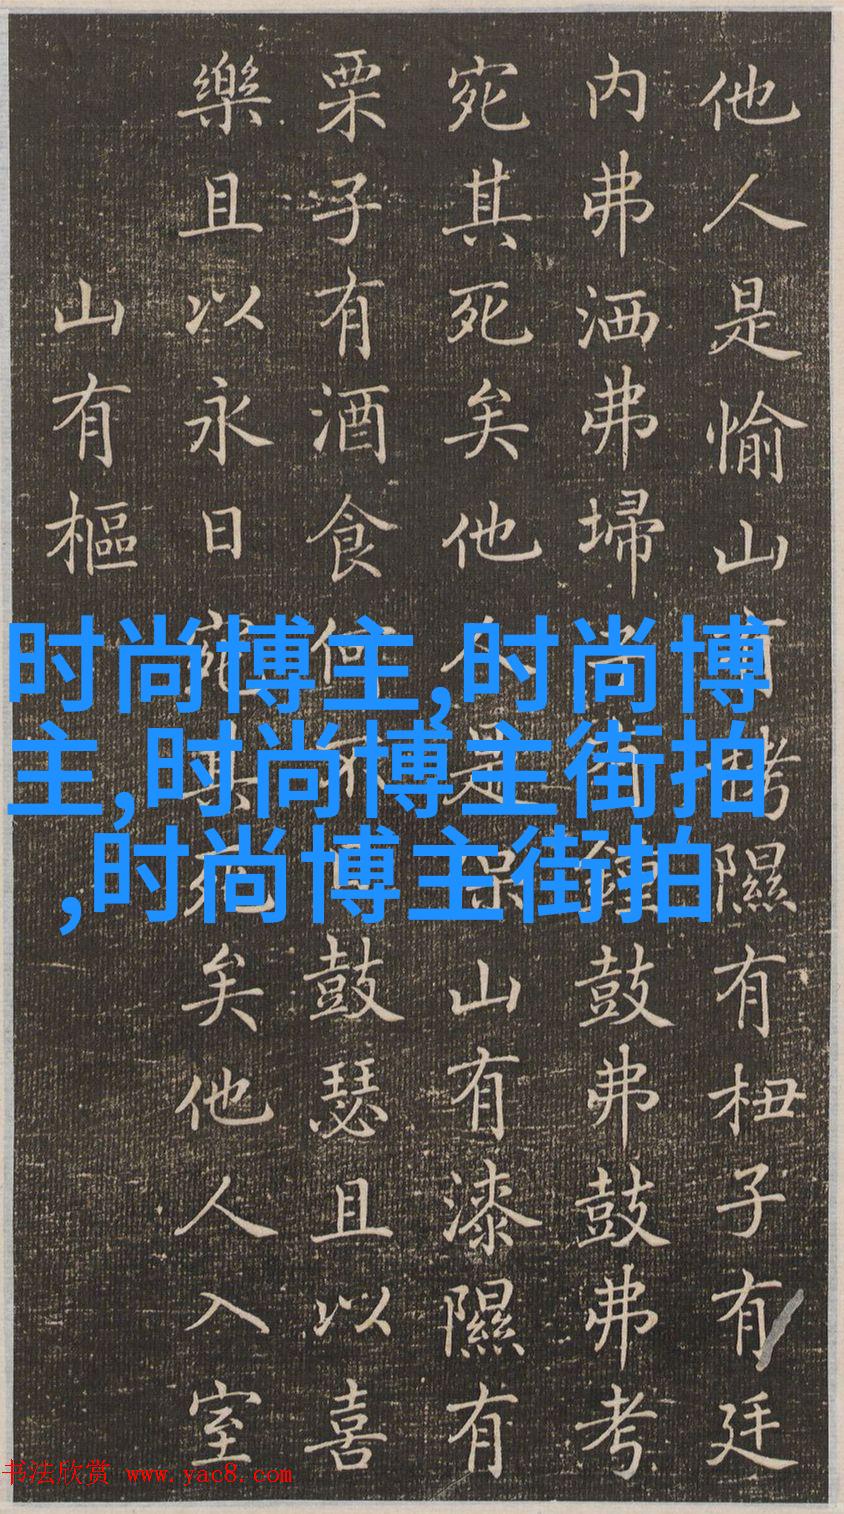 他人是愉山有栲隰有杻子有廷
内弗洒弗埽鍾鼓弗鼓弗考
宛其死矣他人是保山有漆隰有
栗子有酒食何不日鼓瑟且以喜
樂且以永日宛其死矣他人入室
山有樞
时尚博主,时尚博
主,时尚博主街拍
,时尚博主街拍
书法欣赏 www.yac8.com